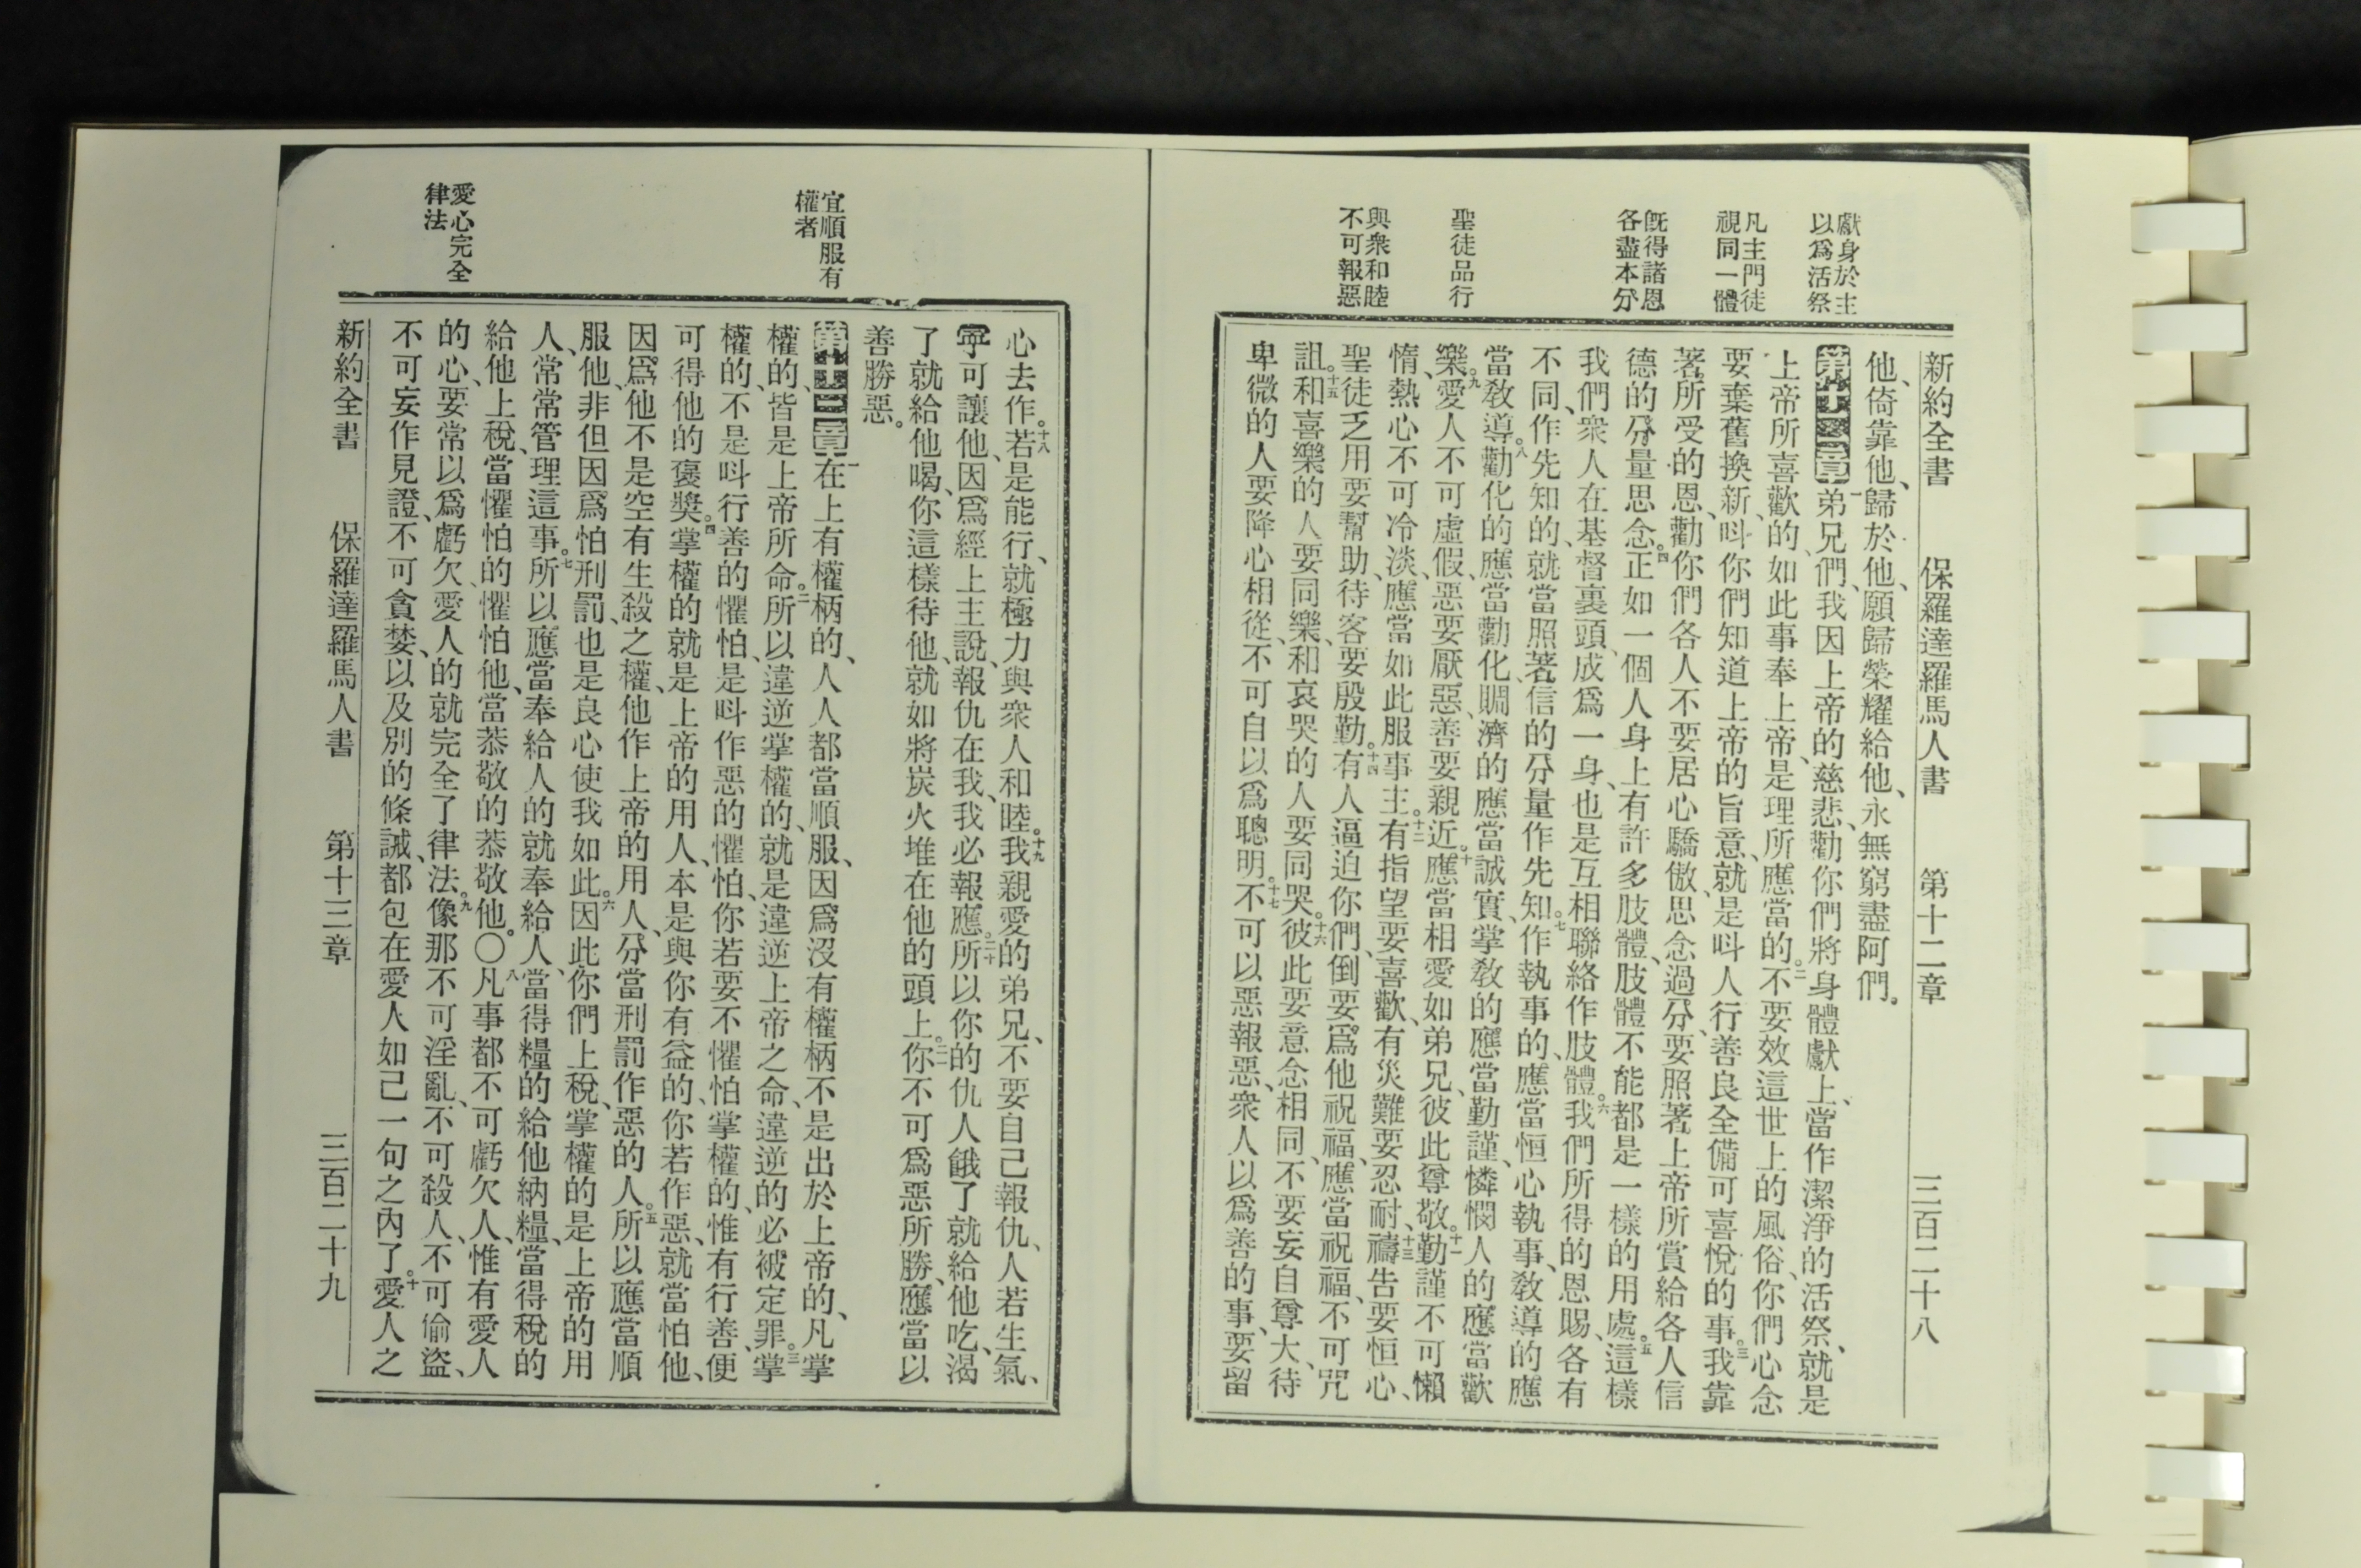 獻身於主
以爲活祭
凡主門徒
視同一體
旣得諸恩
各盡本分
聖徒品行
與衆和睦
不可報惡
新約全書 保羅達羅馬人書 第十二章 三百二十八
他、倚靠他、歸於他、願歸榮耀給他、永無窮盡阿們。
第十二章 一弟兄們、我因上帝的慈悲、勸你們將身體獻上、當作潔淨的活祭、就是
上帝所喜歡的、如此事奉上帝、是理所應當的。二不要效這世上的風俗、你們心念
要棄舊換新、呌你們知道上帝的旨意、就是呌人行善良全備可喜悅的事。三我靠
著所受的恩、勸你們各人不要居心驕傲、思念過分、要照著上帝所賞給各人信
德的分量思念。四正如一個人身上有許多肢體、肢體不能都是一樣的用處。五這樣
我們衆人在基督裏頭、成爲一身、也是互相聯絡作肢體。六我們所得的恩賜、各有
不同、作先知的、就當照著信的分量作先知。七作執事的、應當恒心執事、敎導的應
當敎導。八勸化的應當勸化、賙濟的應當誠實、掌敎的應當勤謹、憐憫人的應當歡
樂。九愛人不可虛假、惡要厭惡、善要親近。十應當相愛如弟兄、彼此尊敬。十一勤謹不可懶
惰、熱心不可冷淡、應當如此服事主。十二有指望要喜歡、有災難要忍耐、十三禱告要恒心、
聖徒乏用要幫助、待客要殷勤。十四有人逼迫你們、倒要爲他祝福、應當祝福、不可咒
詛。十五和喜樂的人要同樂、和哀哭的人要同哭。十六彼此要意念相同、不要妄自尊大、待
卑微的人要降心相從、不可自以爲聰明。十七不可以惡報惡、衆人以爲善的事、要留
宜順服有
權者
愛心完全
律法
心去作。十八若是能行、就極力與衆人和睦。十九我親愛的弟兄、不要自己報仇、人若生氣、
寧可讓他、因爲經上主說、報仇在我、我必報應。二十所以你的仇人餓了就給他吃、渴
了就給他喝、你這樣待他、就如將炭火堆在他的頭上。二一你不可爲惡所勝、應當以
善勝惡。
第十三章 一在上有權柄的、人人都當順服、因爲沒有權柄不是出於上帝的、凡掌
權的、皆是上帝所命。二所以違逆掌權的、就是違逆上帝之命、違逆的必被定罪。三掌
權的、不是呌行善的懼怕、是呌作惡的懼怕、你若要不懼怕掌權的、惟有行善、便
可得他的襃奬。四掌權的就是上帝的用人、本是與你有益的、你若作惡、就當怕他、
因爲他不是空有生殺之權、他作上帝的用人、分當刑罰作惡的人。五所以應當順
服他、非但因爲怕刑罰、也是良心使我如此。六因此你們上稅、掌權的是上帝的用
人、常常管理這事。七所以應當奉給人的就奉給人、當得糧的給他納糧、當得稅的
給他上稅、當懼怕的懼怕他、當恭敬的恭敬他。〇八凡事都不可虧欠人、惟有愛人
的心、要常以爲虧欠、愛人的就完全了律法。九像那不可淫亂、不可殺人、不可偷盜、
不可妄作見證、不可貪婪、以及別的條誡、都包在愛人如己一句之內了。十愛人之
新約全書 保羅達羅馬人書 第十三章 三百二十九